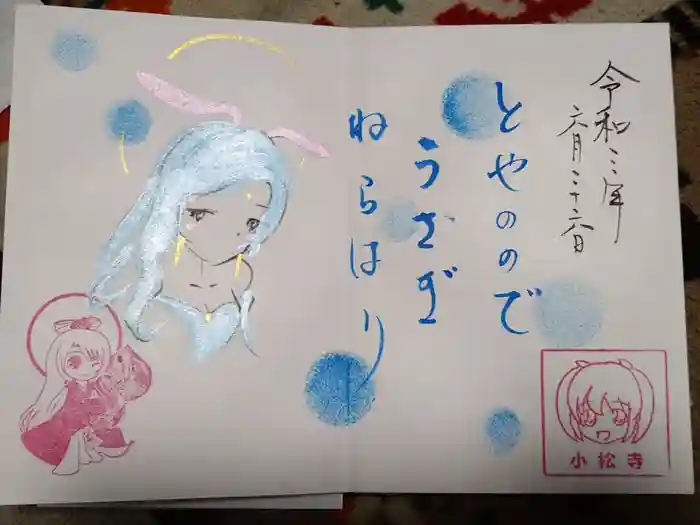 令和三年
六月二十六日
とやのので
うさぎ
ねらはり
小松寺